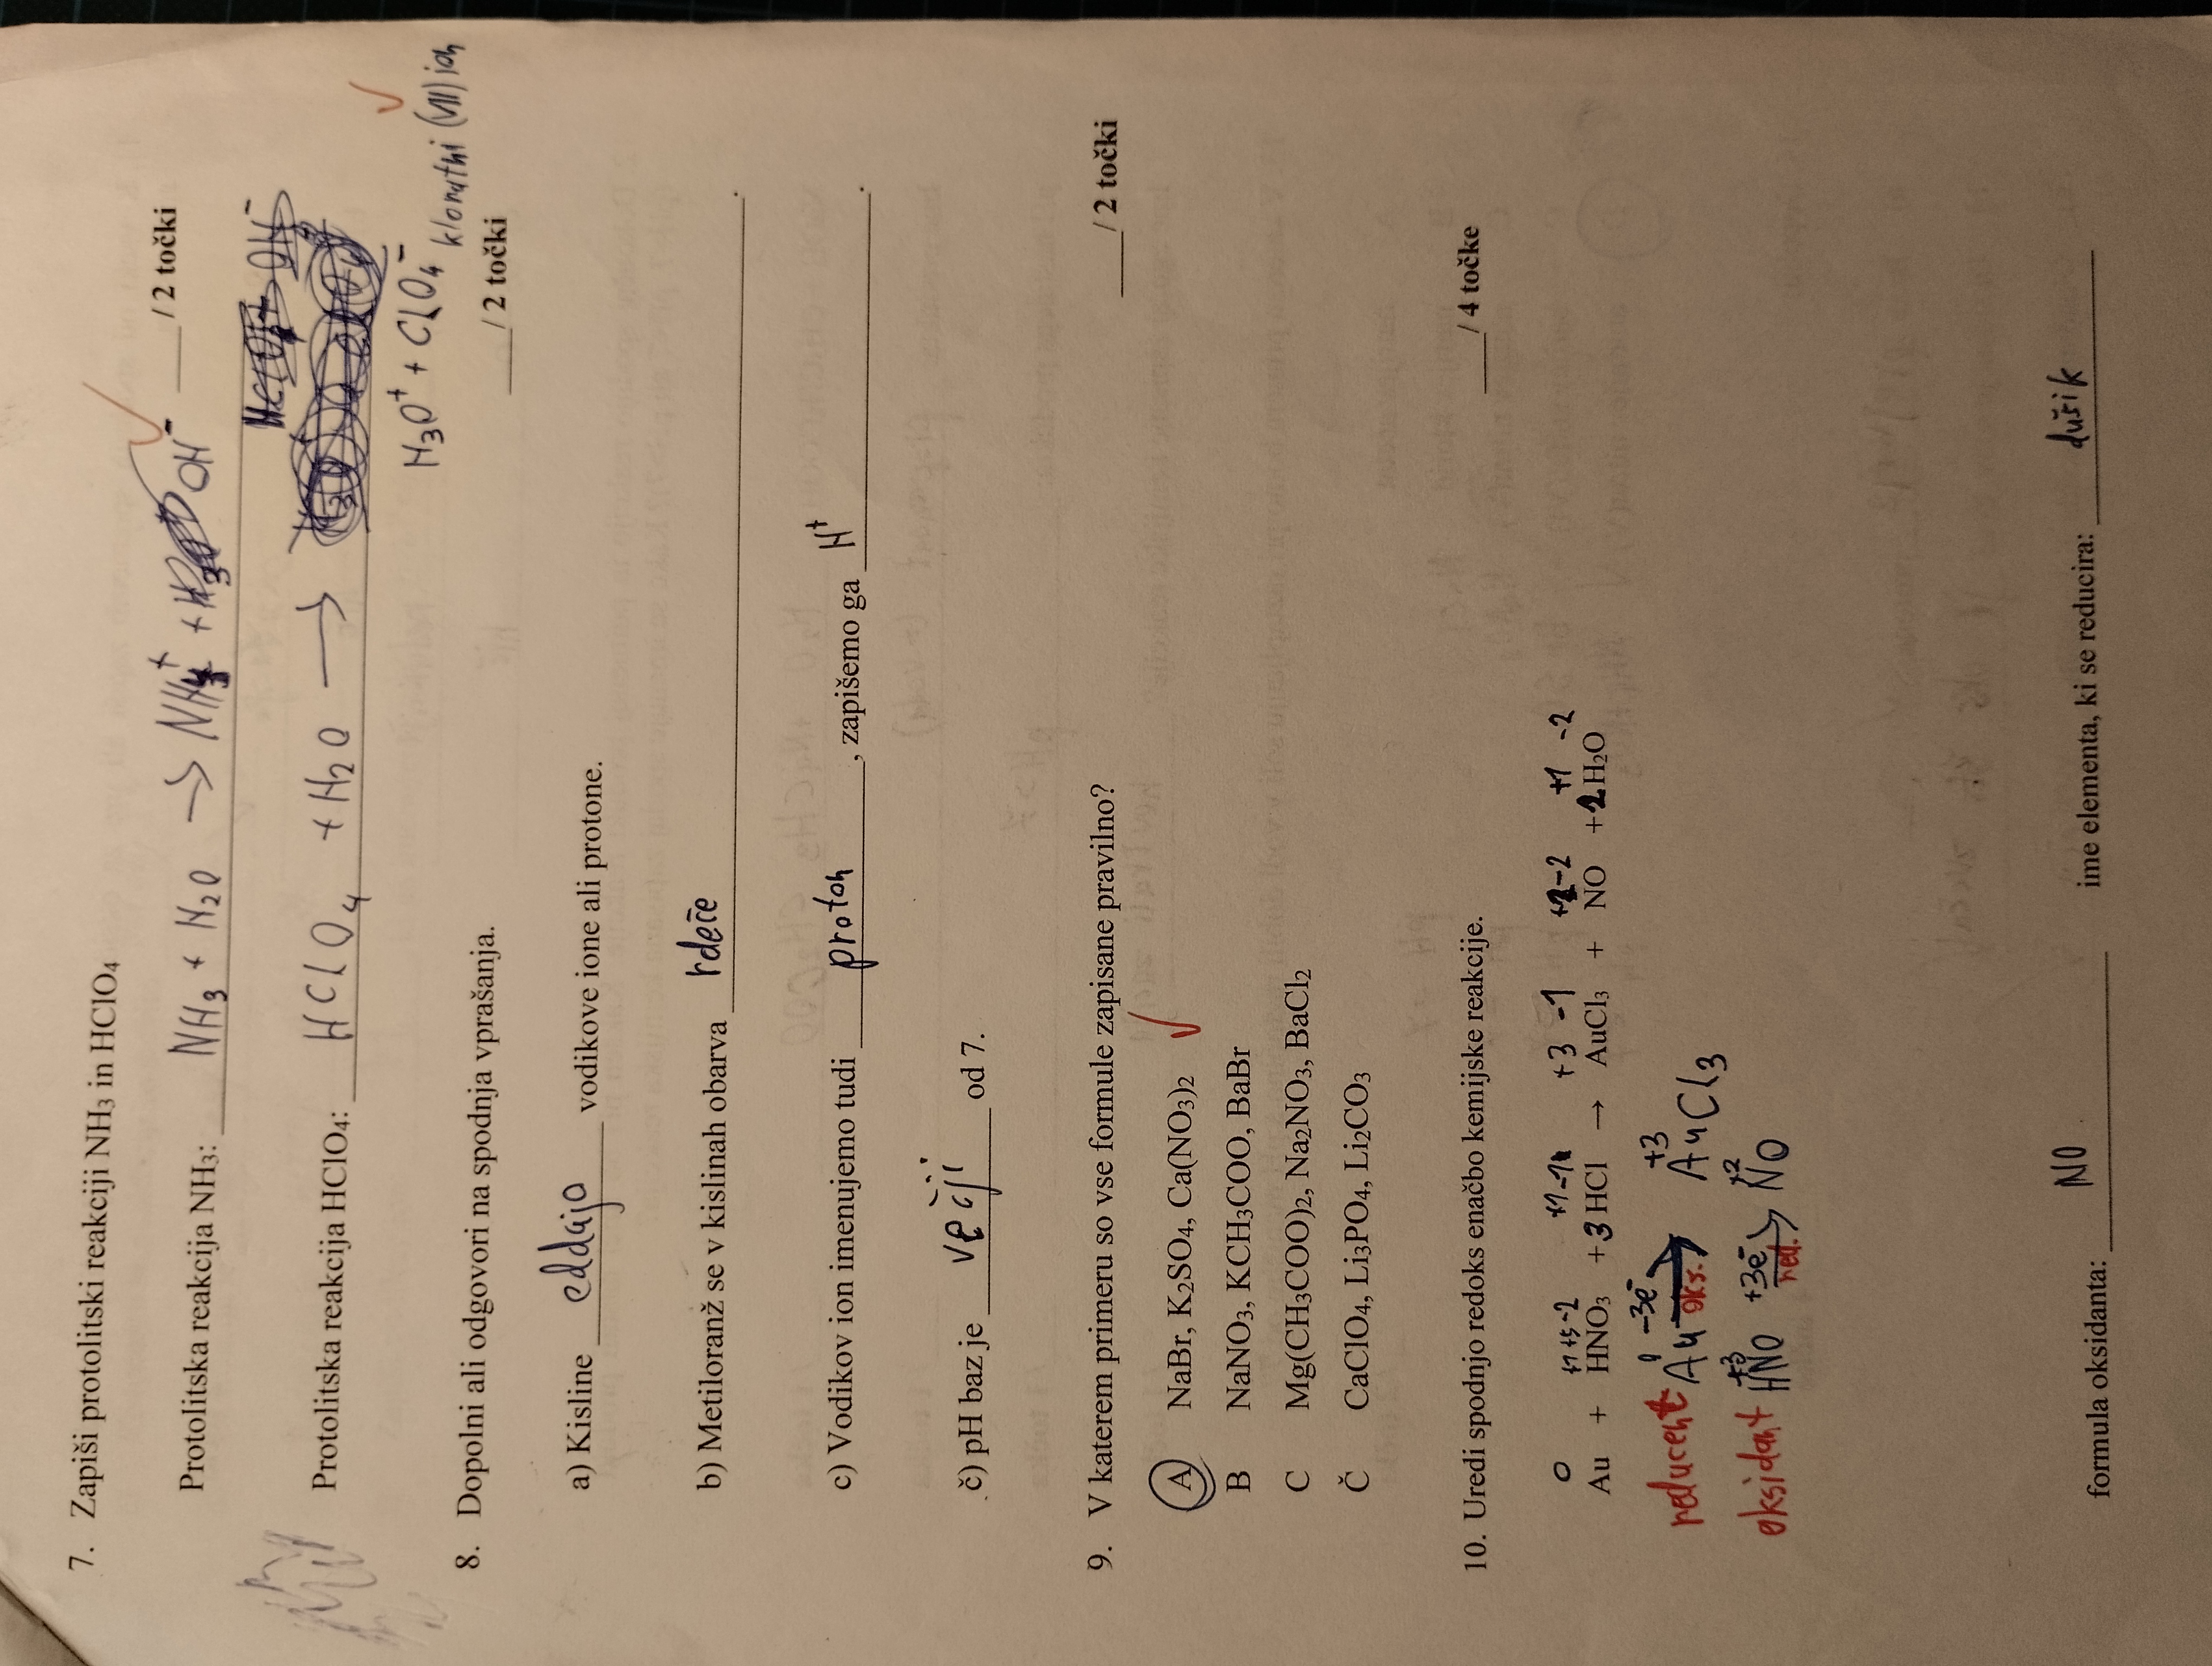 7. Zapiši protolitski reakciji NH₃ in HClO₄
___/ 2 točki
Protolitska reakcija NH₃: NH₃ + H₂O → NH₄⁺ + OH⁻
Protolitska reakcija HClO₄: HClO₄ + H₂O →
H₃O⁺ + ClO₄⁻ kloratni (VII) ion
8. Dopolni ali odgovori na spodnja vprašanja.
___/ 2 točki
a) Kisline oddajo vodikove ione ali protone.
b) Metiloranž se v kislinah obarva rdeče.
c) Vodikov ion imenujemo tudi proton, zapišemo ga H⁺.
č) pH baz je večji od 7.
9. V katerem primeru so vse formule zapisane pravilno? ___/ 2 točki
A NaBr, K₂SO₄, Ca(NO₃)₂
B NaNO₃, KCH₃COO, BaBr
C Mg(CH₃COO)₂, Na₂NO₃, BaCl₂
Č CaClO₄, Li₃PO₄, Li₂CO₃
10. Uredi spodnjo redoks enačbo kemijske reakcije. ___/ 4 točke
0 +1 +5 -2 +1 -1 +3 -1 +2 -2 +1 -2
Au + HNO₃ + 3 HCl → AuCl₃ + NO + 2 H₂O
0 -3e⁻ +3
reducent Au oks. AuCl₃
+3 +3e⁻ +2
oksidant HNO red. NO
formula oksidanta: NO ime elementa, ki se reducira: dušik